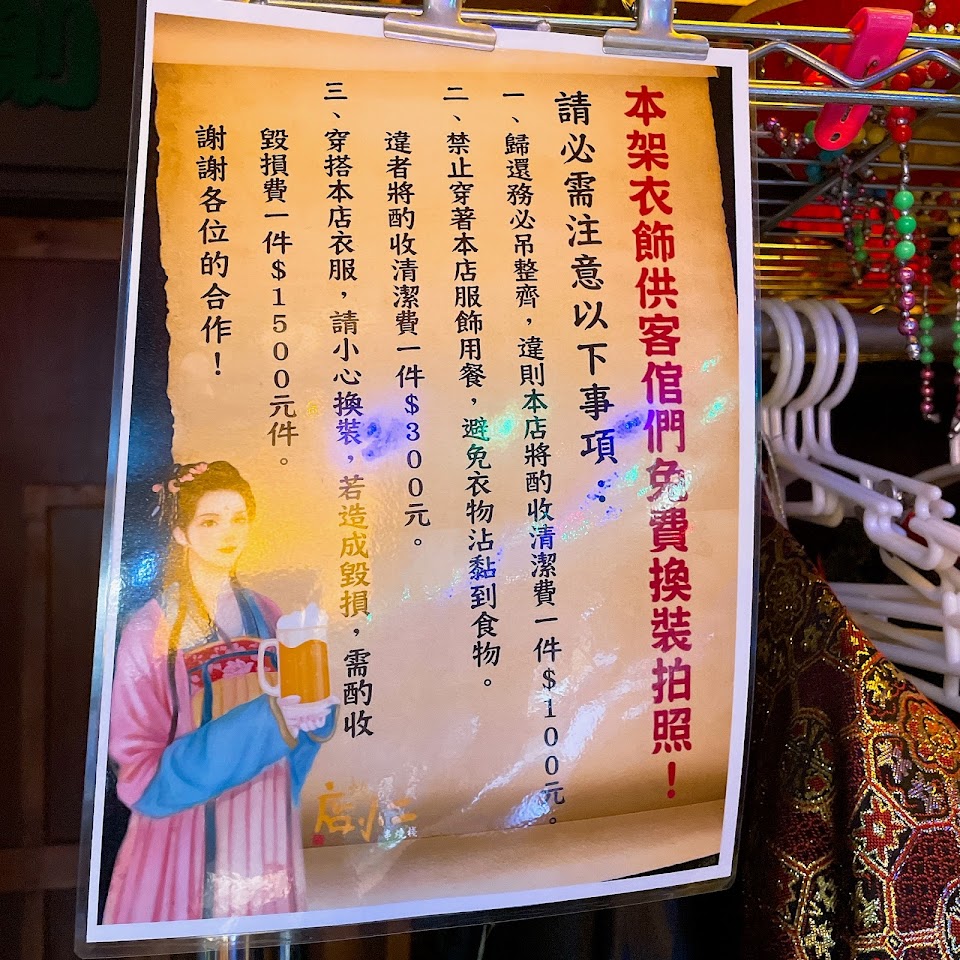 本架衣飾供客倌們免費換裝拍照！
請必需注意以下事項：
一、歸還務必吊整齊，違則本店將酌收清潔費一件$100元。
二、禁止穿著本店服飾用餐，避免衣物沾黏到食物。
違者將酌收清潔費一件$300元。
三、穿搭本店衣服，請小心換裝，若造成毀損，需酌收
毀損費一件$1500元件。
謝謝各位的合作！
店小二
串燒棧